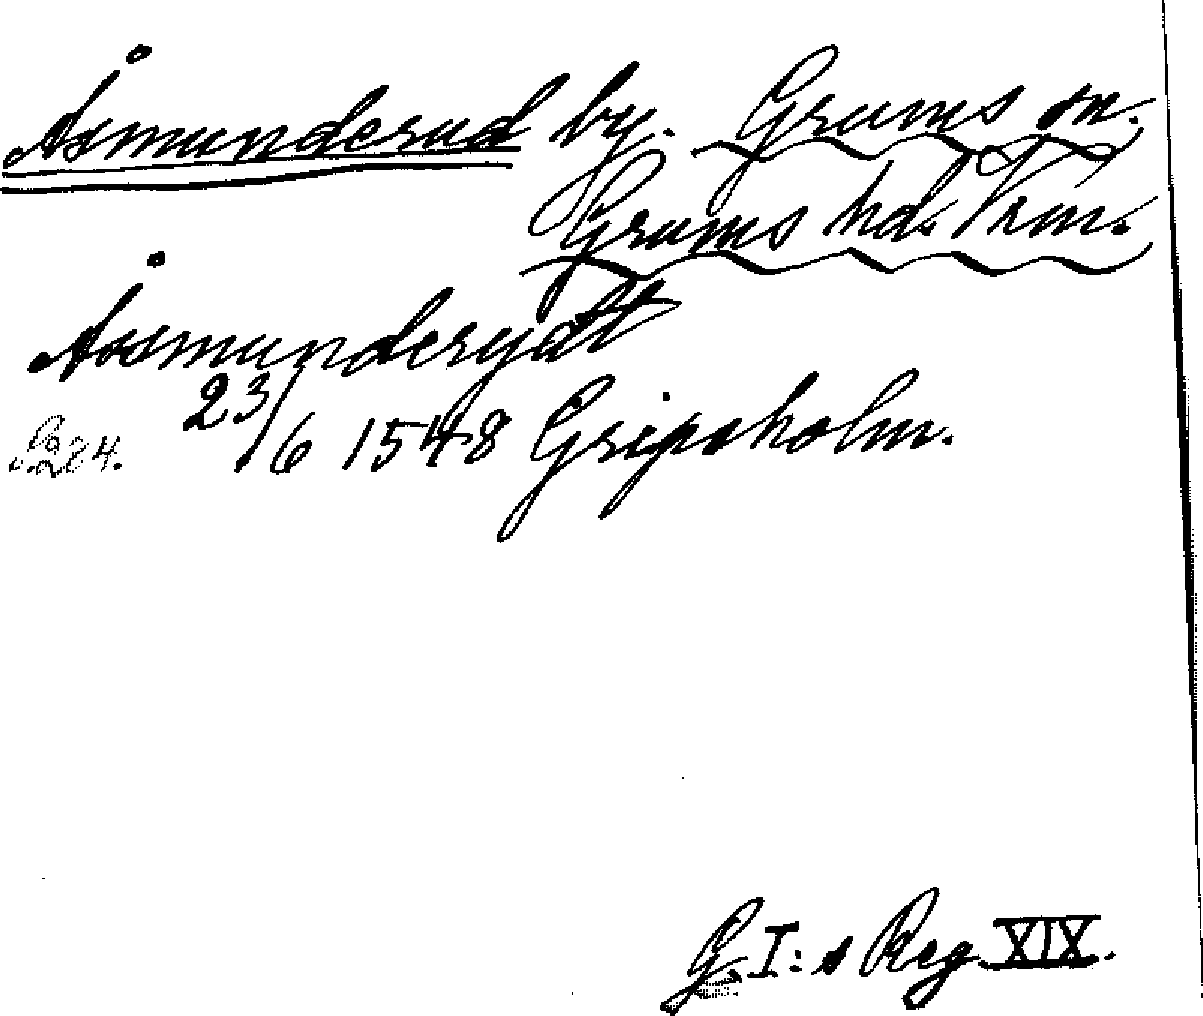 Åsmunderud by. Grums sn.
Grums hd. Vrm.
Åssmunderydt
23/6 1548 Gripsholm.
284.
G. I:s Reg. XIX.